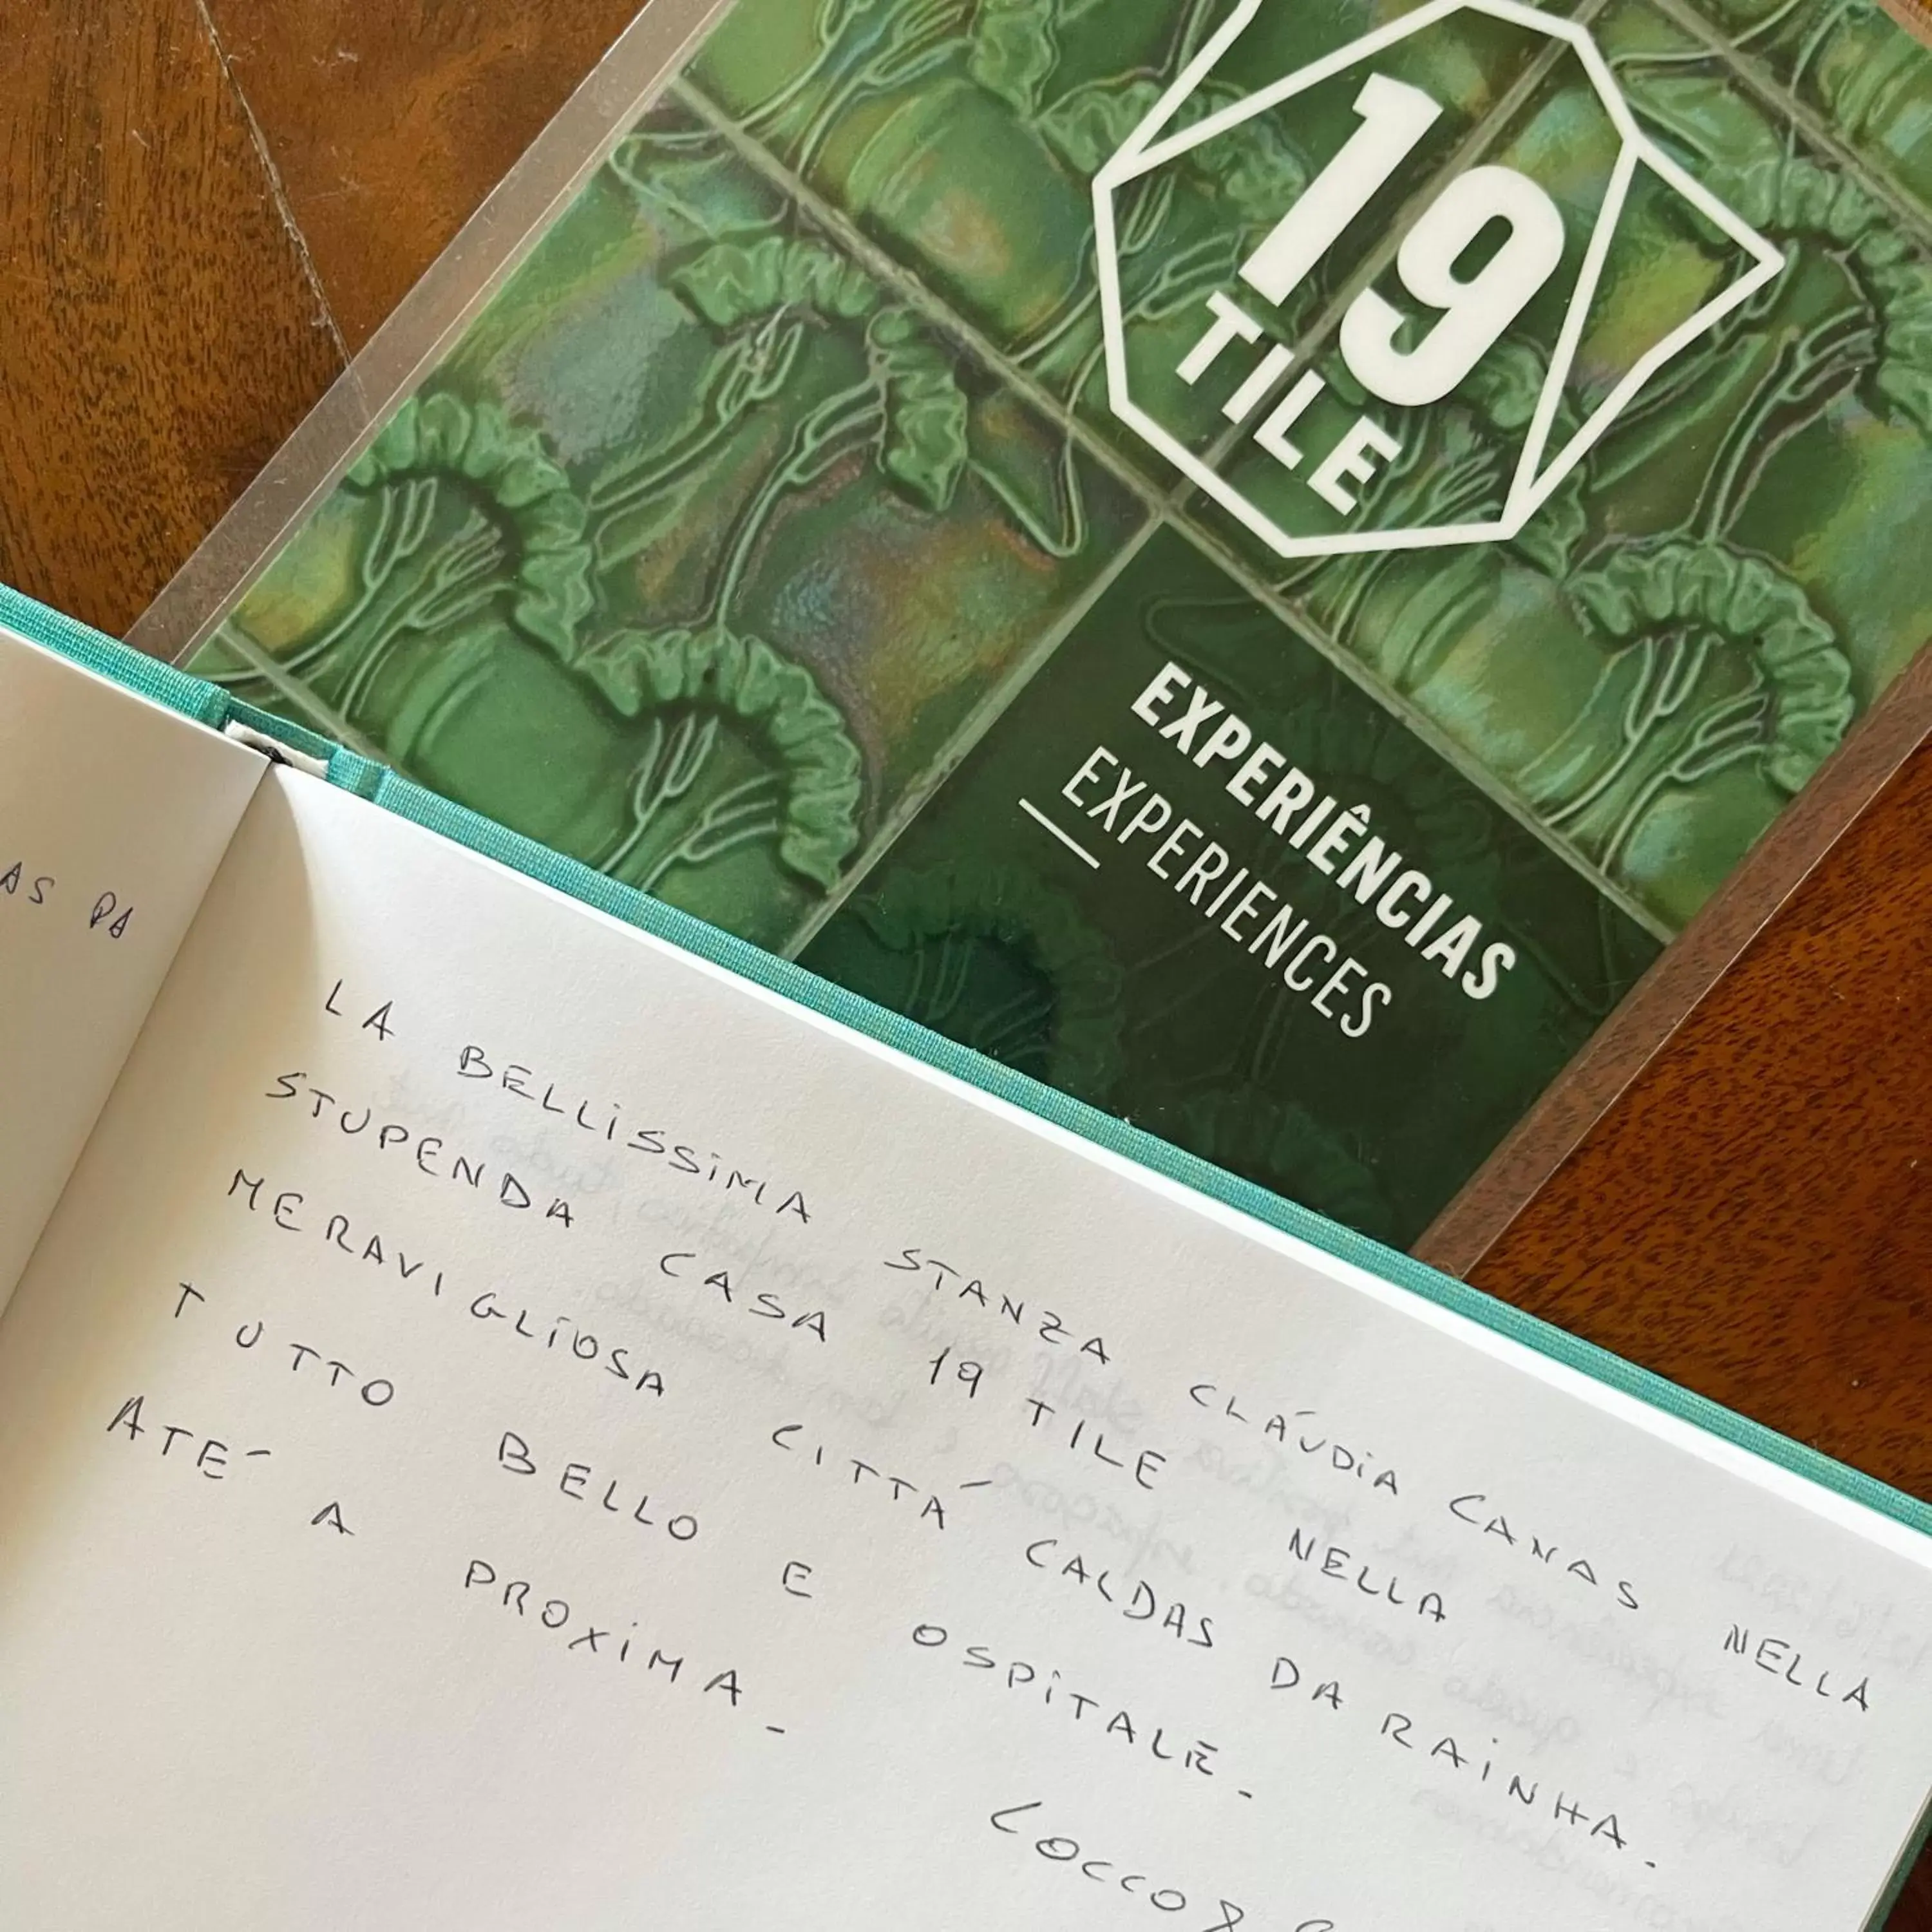 19
TILE
EXPERIÊNCIAS
EXPERIENCES
AS PA
LA BELLISSIMA STANZA CLÁUDIA CANAS NELLA
STUPENDA CASA 19 TILE NELLA
MERAVIGLIOSA CITTÁ CALDAS DA RAINHA.
TUTTO BELLO E OSPITALE.
ATÉ A PROXIMA.
LOCCO &